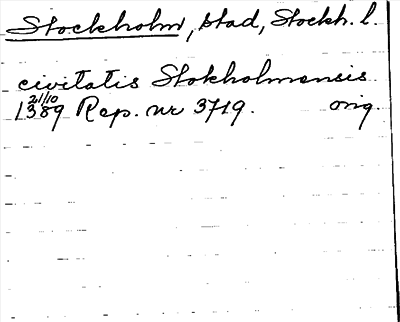 Stockholm, stad, Stockh. l.
civitatis Stokholmensis
1389 21/10 Rep. nr 3719. orig.